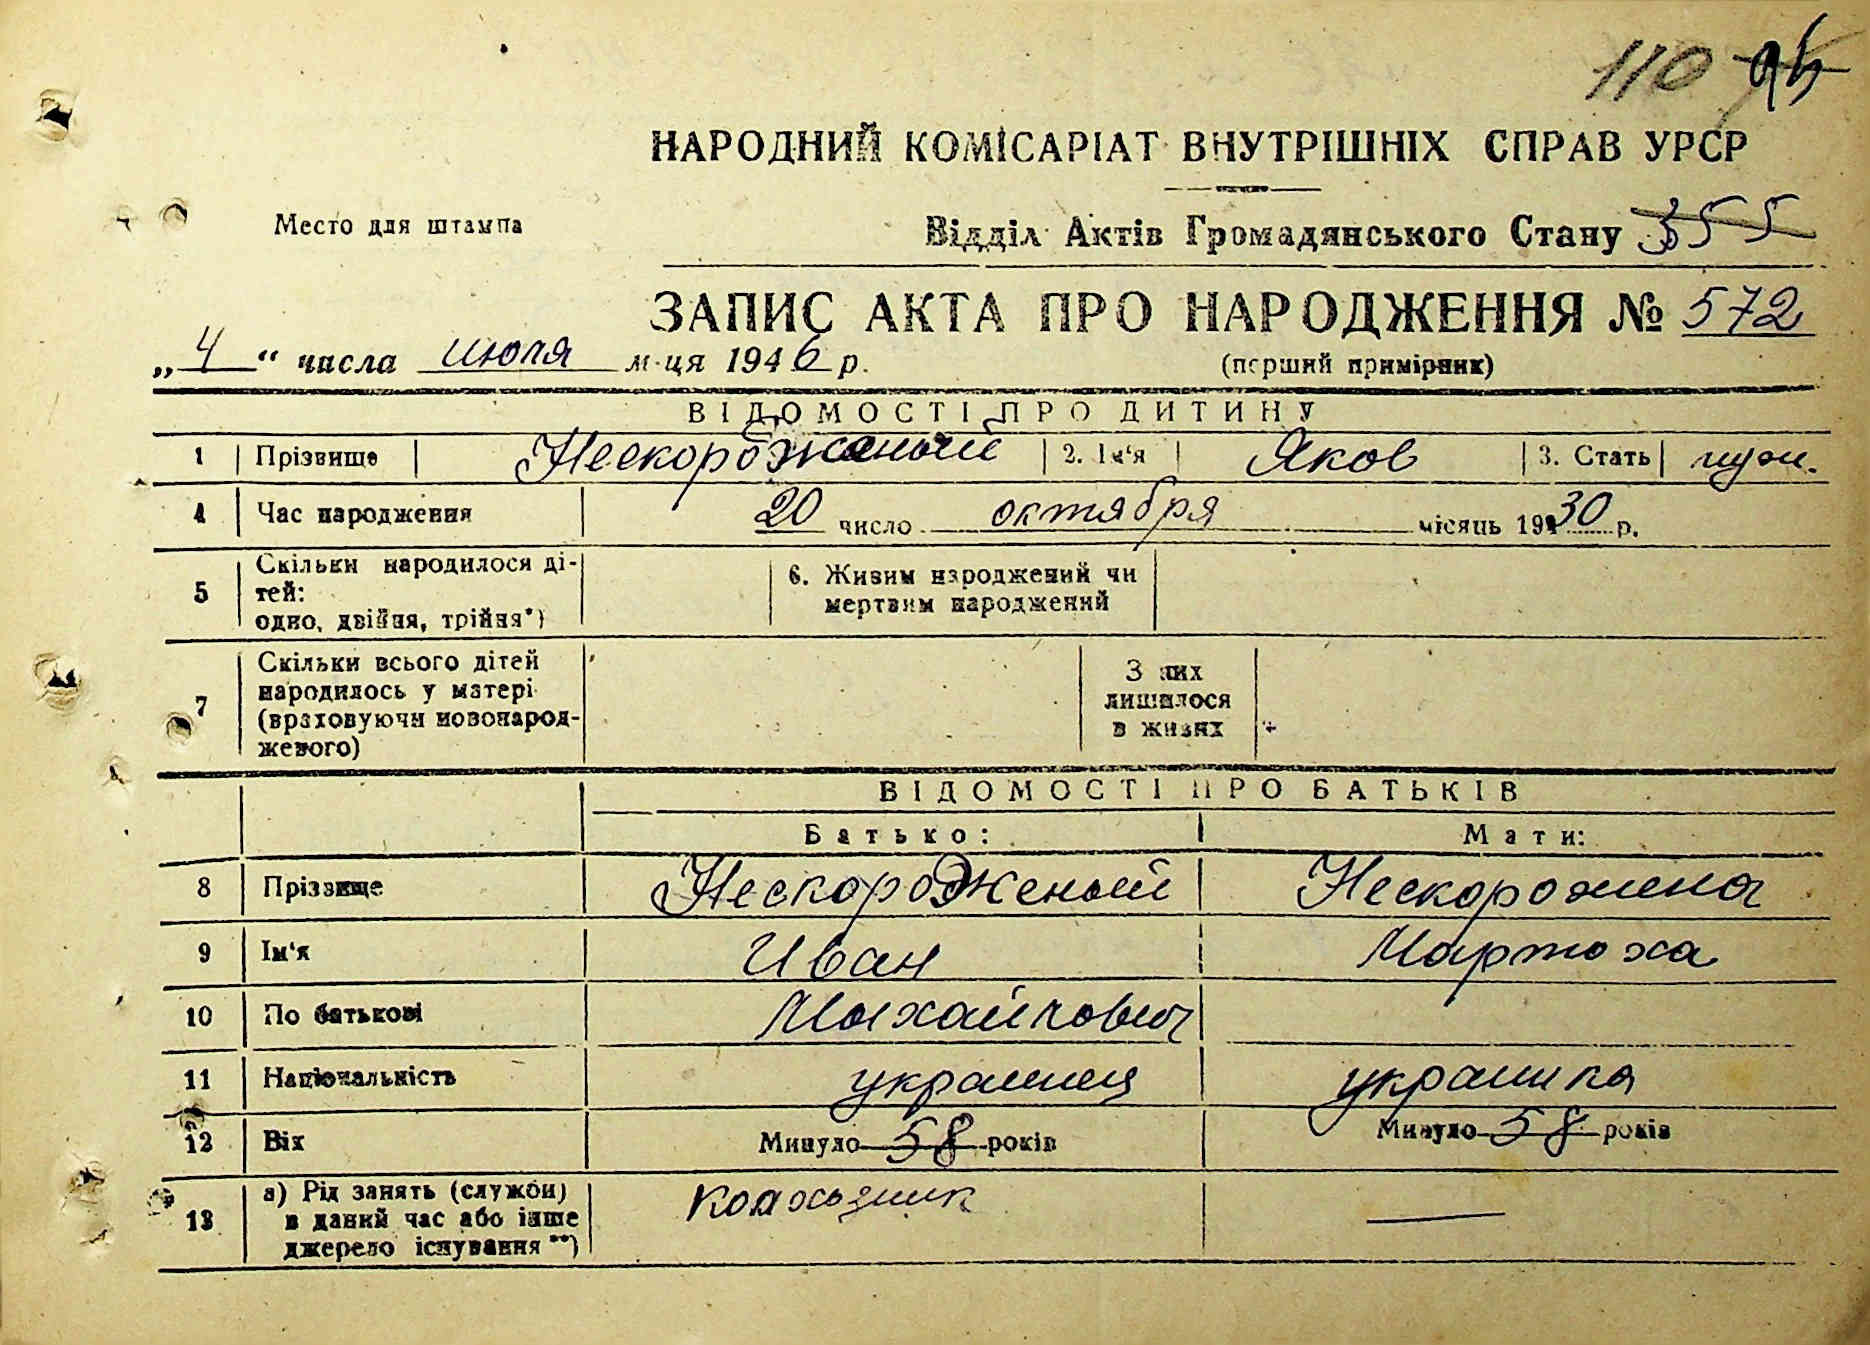 110 95
НАРОДНИЙ КОМІСАРІАТ ВНУТРІШНІХ СПРАВ УРСР
Место для штампа
Відділ Актів Громадянського Стану 355
ЗАПИС АКТА ПРО НАРОДЖЕННЯ № 572
„4“ числа июля м-ця 1946 р. (перший примірник)
ВІДОМОСТІ ПРО ДИТИНУ
1 Прізвище Нескородженый 2. Ім'я Яков 3. Стать муж.
4 Час народження 20 число октября місяць 1930 р.
5 Скільки народилося ді-
тей:
одно, двійня, трійня*)
6. Живим народжений чи
мертвим народжений
7 Скільки всього дітей
народилось у матері
(враховуючи новонарод-
женого)
З них
лишилося
в живих
ВІДОМОСТІ ПРО БАТЬКІВ
Батько: Мати:
8 Прізвище Нескородженый Нескорожена
9 Ім'я Иван
10 По батькові Михайлович
11 Національність украинец украинка
12 Вік Минуло 58 років Минуло 58 років
13 а) Рід занять (служби)
в даний час або інше
джерело існування **)
колхозник —